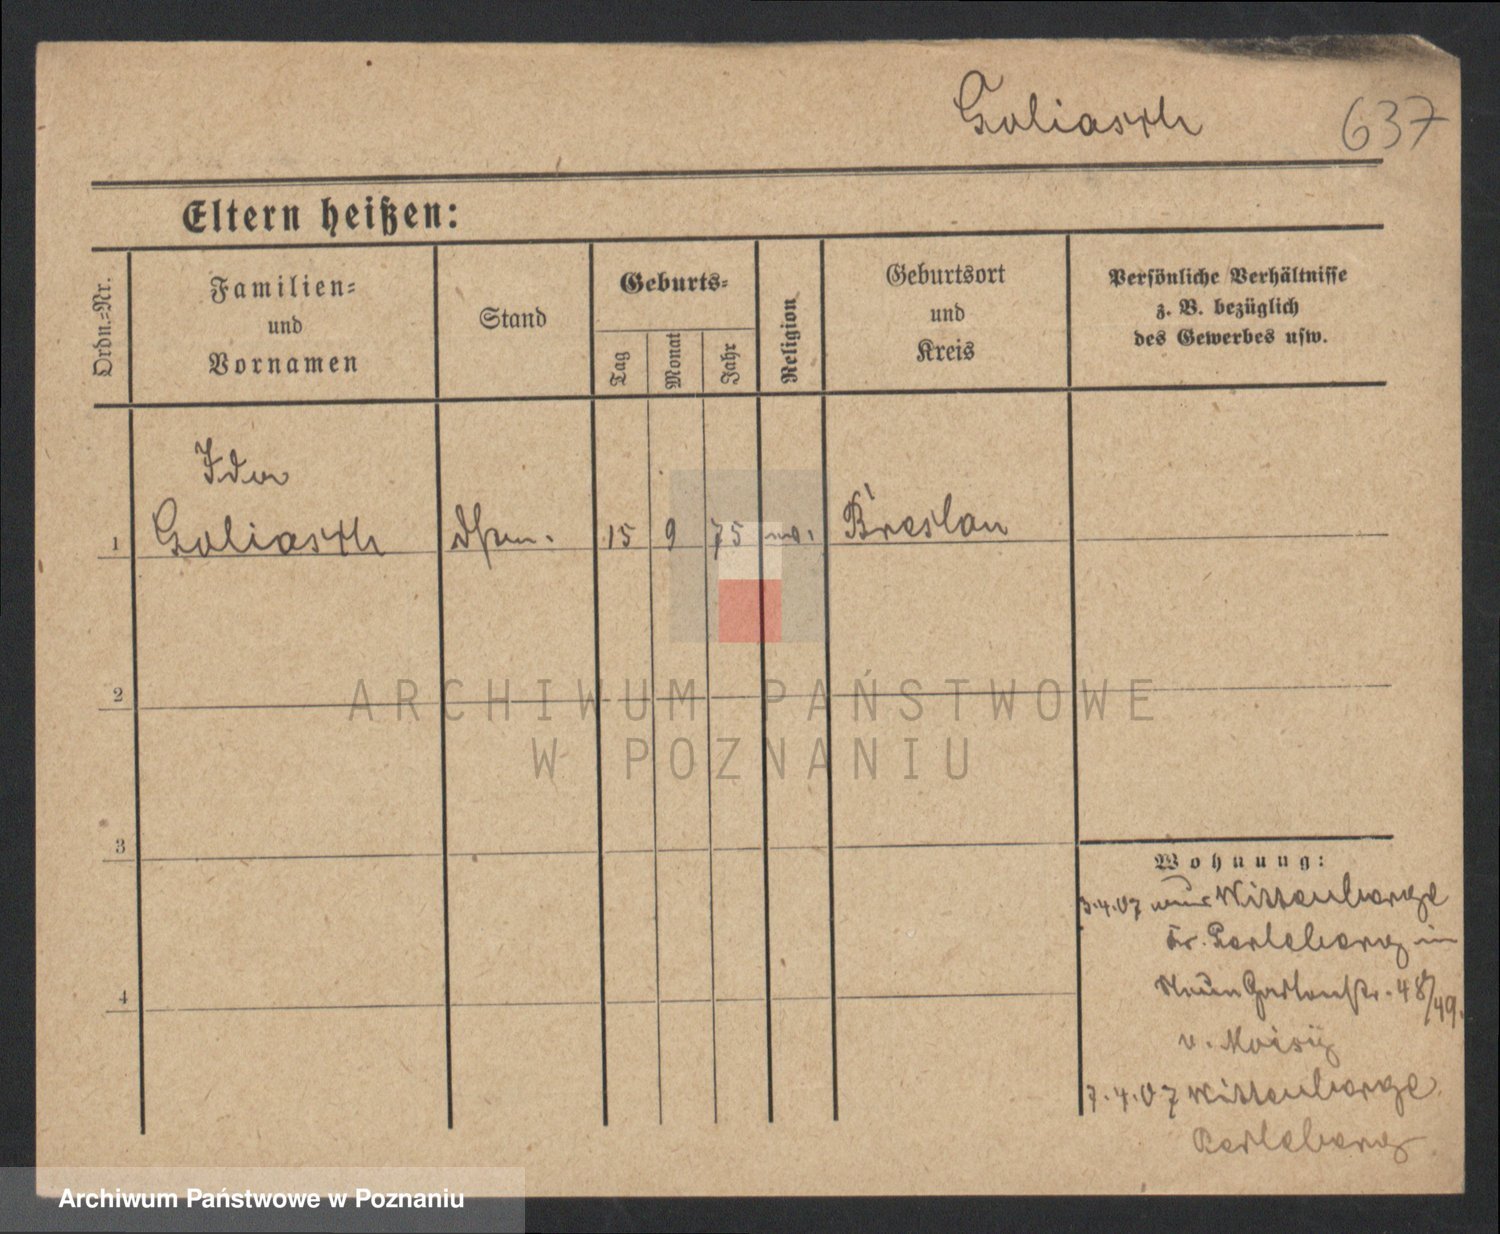 Goliasch 637
Eltern heißen:
Ordn.-Nr.
Familien-
und
Vornamen
Stand
Geburts-
Tag
Monat
Jahr
Religion
Geburtsort
und
Kreis
Persönliche Verhältnisse
z. B. bezüglich
des Gewerbes usw.
Ida
1 Goliasch 15 9 75 Breslau
2
3
4
Wohnung:
3.4.07 Wittenberge
Kr. Perleberg in
Gartenstr. 48/49.
v.
7.4.07 Wittenberge
Perleberg
ARCHIWUM PAŃSTWOWE
W POZNANIU
Archiwum Państwowe w Poznaniu